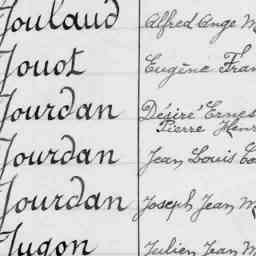 Joulaud Alfred Ange
Jouot Eugène Fran
Jourdan Désiré Ernes
Pierre Henr
Jourdan Jean Louis
Jourdan Joseph Jean M
Jugon Julien Jean M